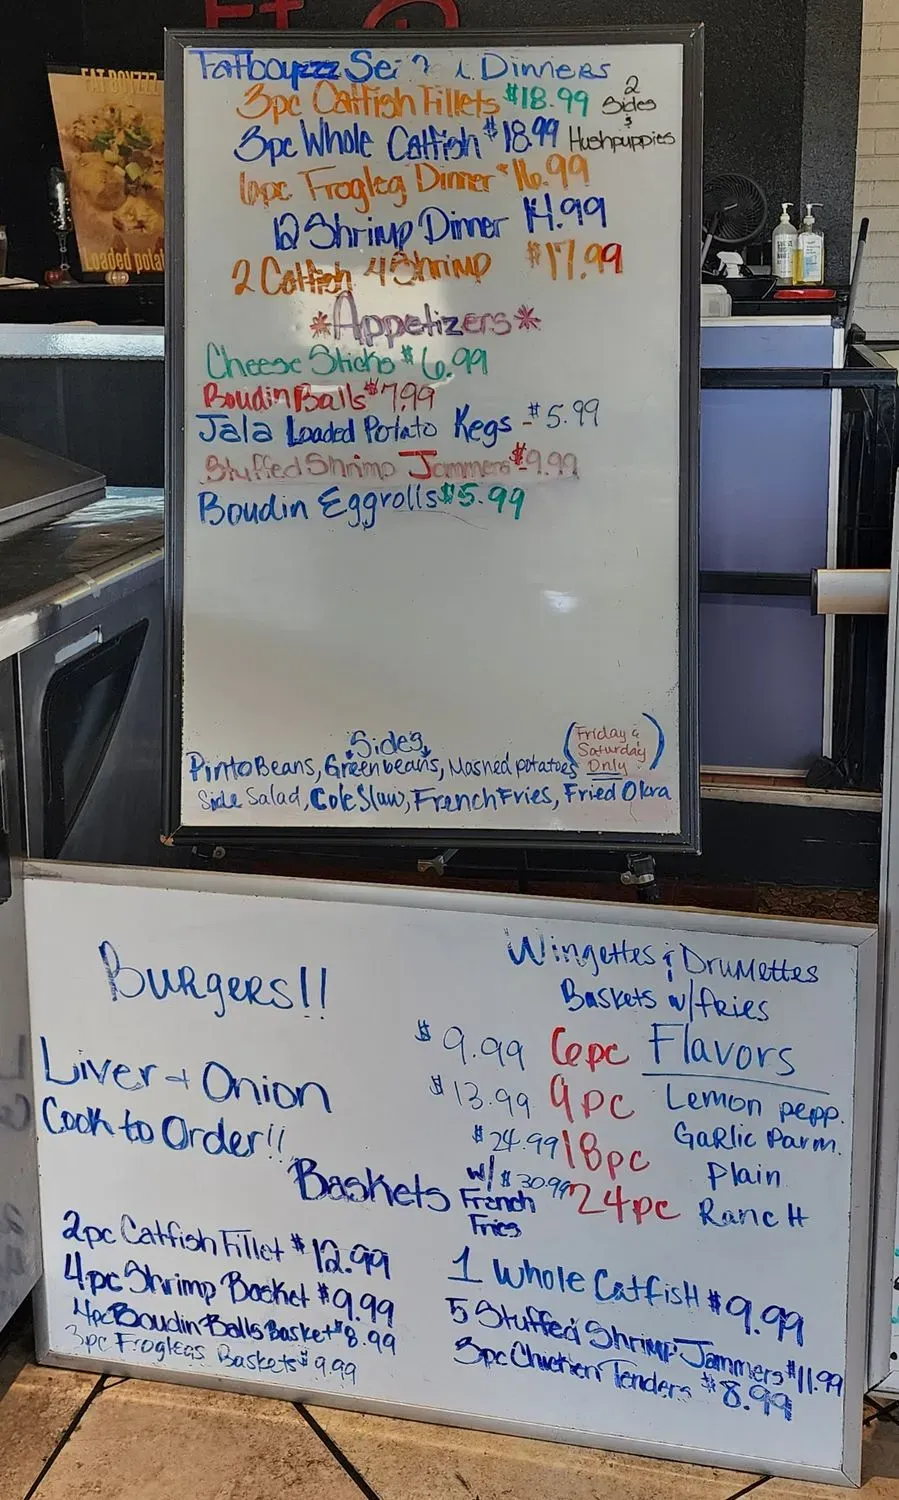 FAT BOYZZZ
Loaded
Fatboyzzz Dinners
3pc Catfish Fillets $18.99
2
Sides
&
Hushpuppies
3pc Whole Catfish $18.99
6pc Frogleg Dinner $16.99
12 Shrimp Dinner 14.99
2 Catfish 4 Shrimp $17.99
*Appetizers*
Cheese Sticks $6.99
Boudin Balls $7.99
Jala Loaded Potato Kegs -$5.99
Stuffed Shrimp Jammers $9.99
Boudin Eggrolls $5.99
Sides
(Friday &
Saturday
Only)
Pinto Beans, Greenbeans, Mashed potatoes
Side Salad, Cole Slaw, French Fries, Fried Okra
Burgers!!
Liver + Onion
Cook to Order!!
Wingettes & Drumettes
Baskets w/fries
$9.99 6pc
$13.99 9pc
$24.99 18pc
$30.99 24pc
w/
French
Fries
Flavors
Lemon pepp.
Garlic Parm.
Plain
Ranch
Baskets
2pc Catfish Fillet $12.99
4pc Shrimp Basket $9.99
4pc Boudin Balls Basket $8.99
3pc Froglegs Baskets $9.99
1 Whole Catfish $9.99
5 Stuffed Shrimp Jammers $11.99
3pc Chicken Tenders $8.99